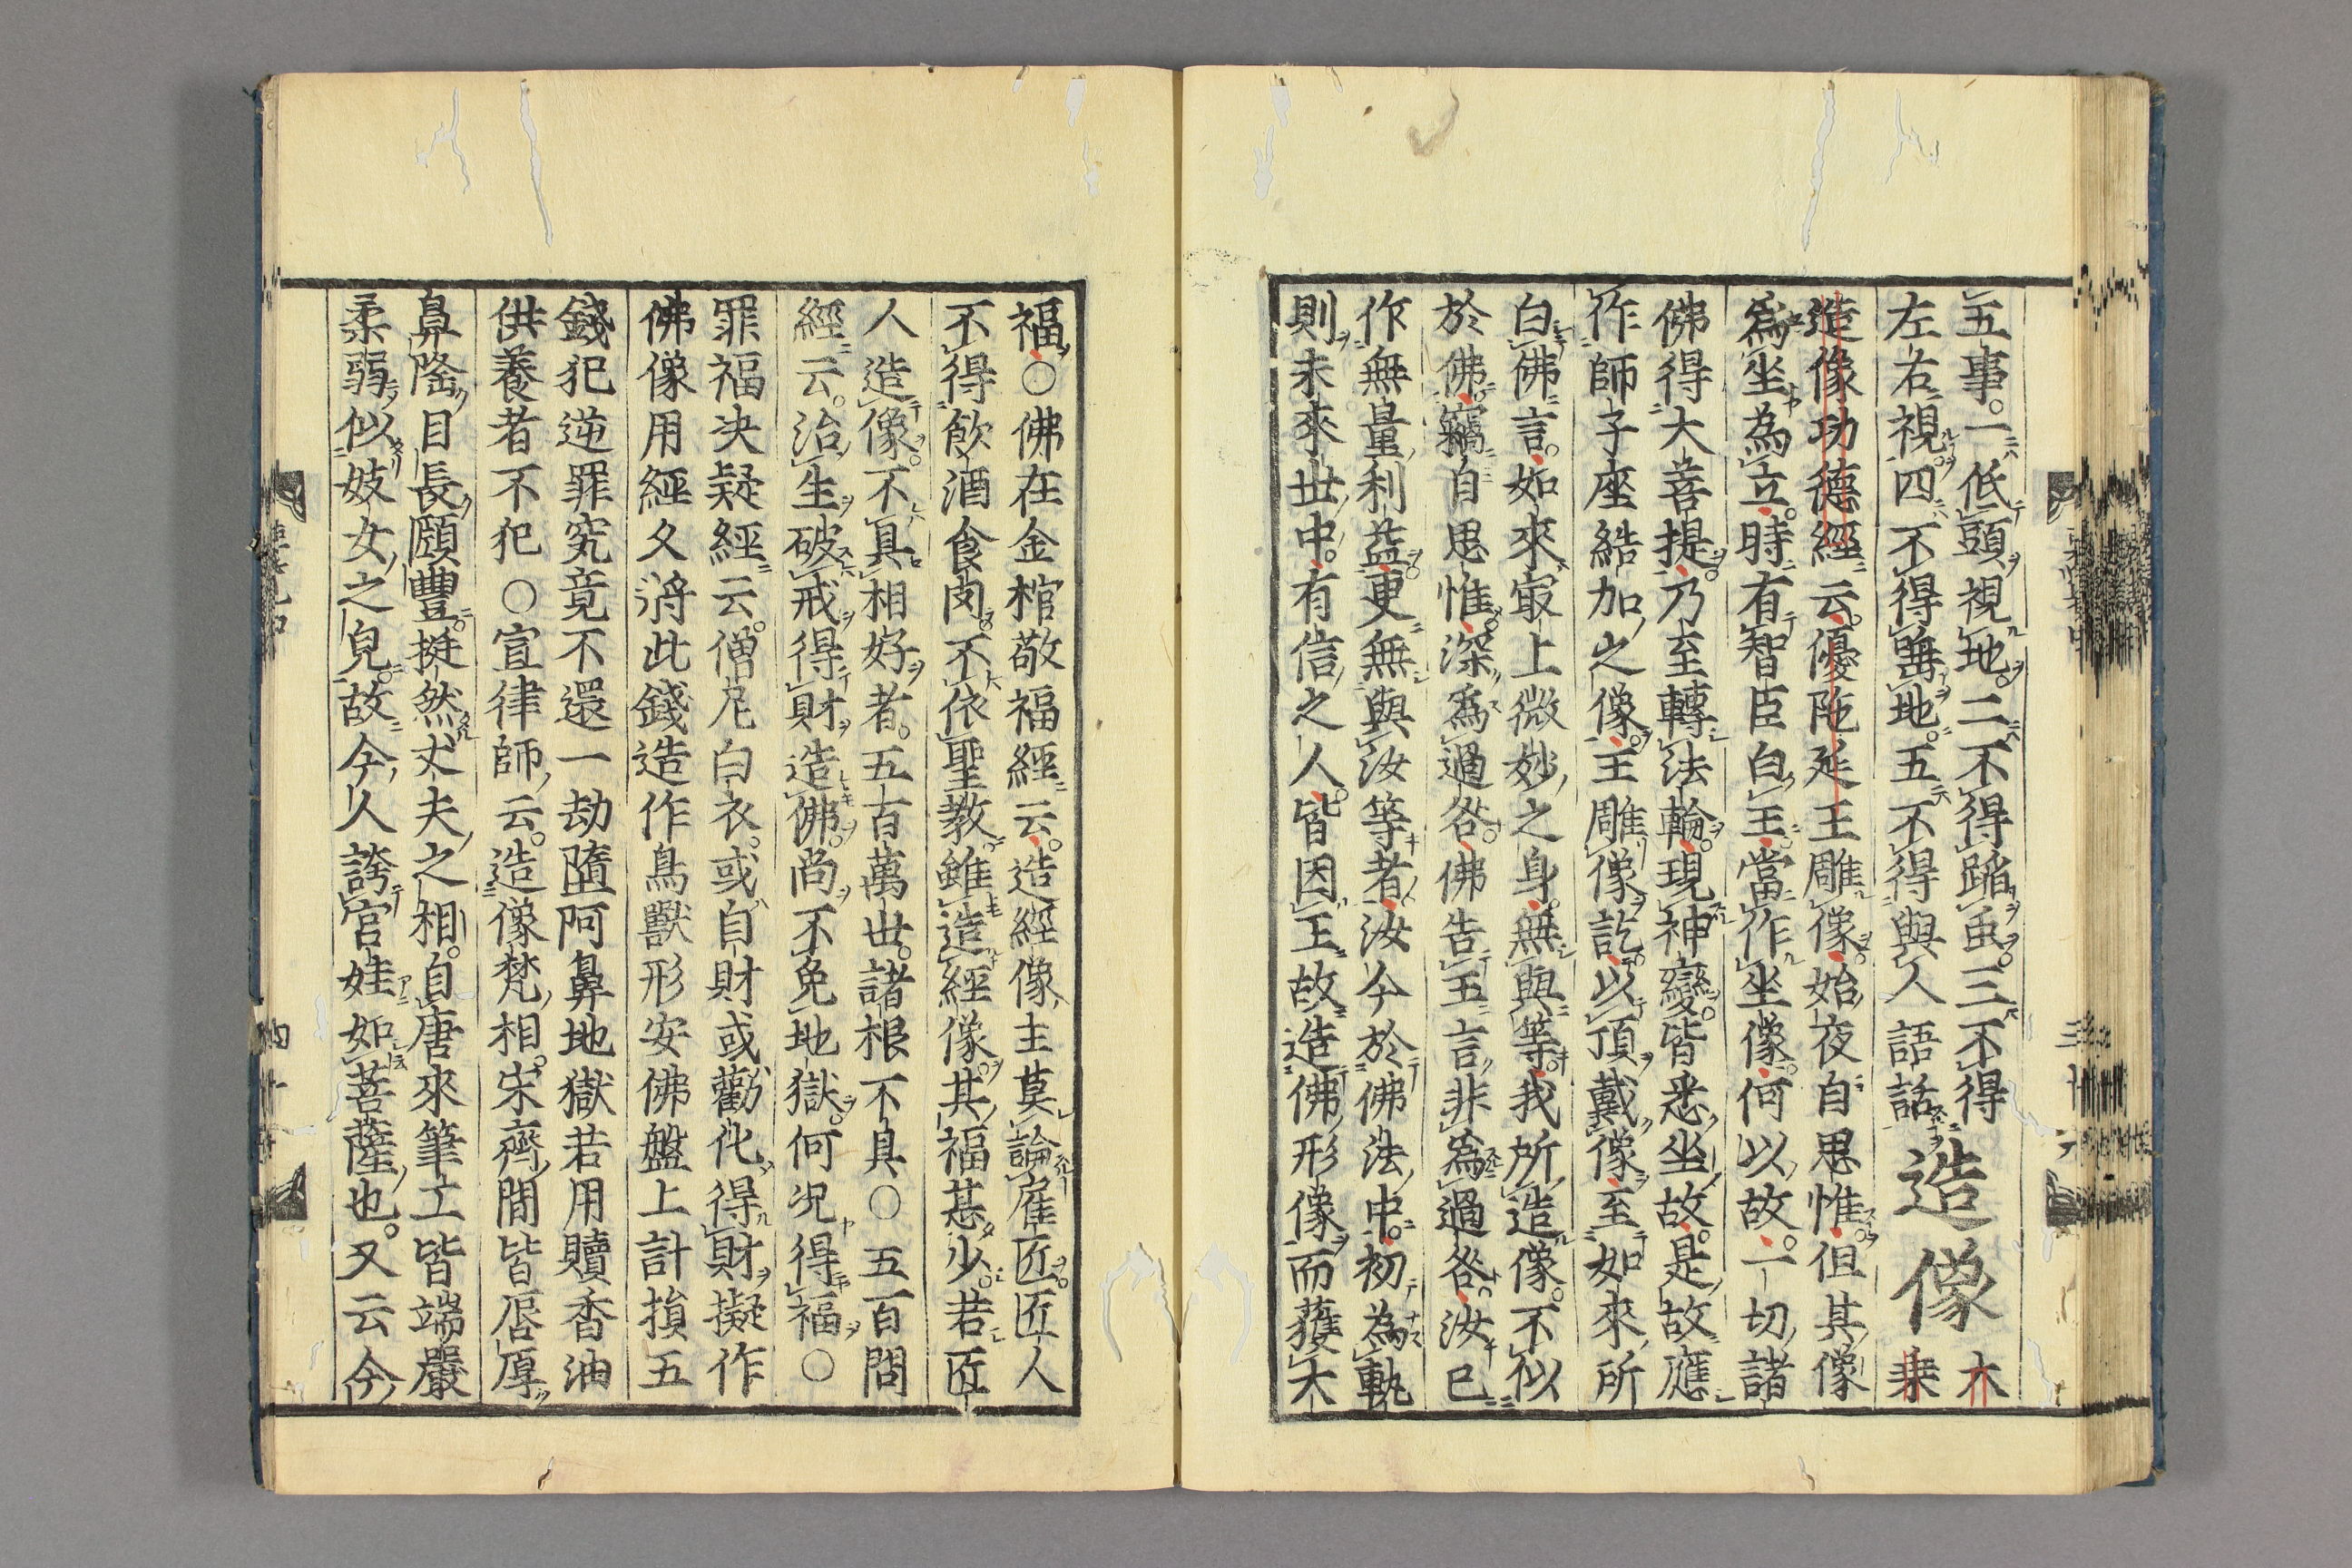 五事。一低頭視地。二不得蹈虫。三不得
左右視。四不得唾地。五不得與人語話
造像
大
乗
造像功德經云。優陁延王雕像。始夜自思惟。但其像
爲坐為立。時有智臣白王。當作坐像。何以故。一切諸
佛得大菩提。乃至轉法輪。現神變。皆悉坐故。是故應
作師子座結加之像。王雕像訖。以頂戴像。至如來所
白佛言。如來冣上微妙之身。無與等。我所造像。不似
於佛。竊自思惟。深爲過咎。佛告王言。非為過咎。汝已
作無量利益。更無與汝等者。汝今於佛法中。初為軌
則。未來世中。有信之人。皆因王故。造佛形像。而獲大
福。○佛在金棺敬福經云。造經像主莫論雇匠。匠人
不得飲酒食肉。不依聖教。雖造經像。其福甚少。若匠
人造像。不具相好者。五百萬世。諸根不具○五百問
經云。治生破戒得財造佛。尚不免地獄。何况得福○
罪福决疑經云。僧尼白衣。或自財或勸化得財擬作
佛像用經久將此錢造作鳥獸形安佛盤上計損五
錢犯逆罪究竟不還一劫墮阿鼻地獄若用贖香油
供養者不犯○宣律師云。造像梵相。宋齊間皆唇厚
鼻隆目長頤豐。挺然丈夫之相。自唐來筆工皆端嚴
柔弱似妓女之皃。故今人誇宮娃如菩薩也。又云今